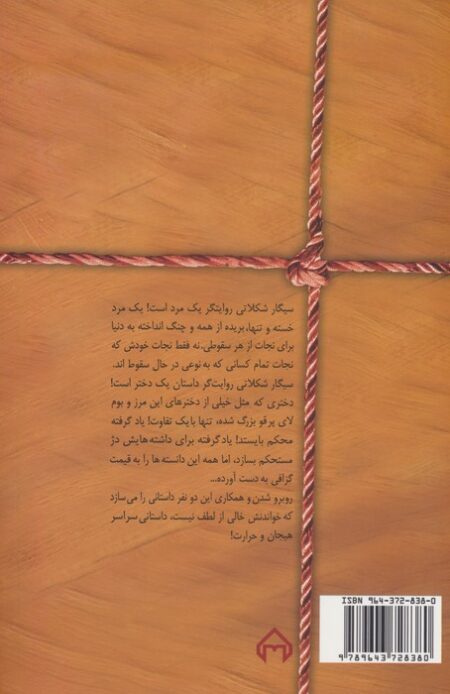 سیگار شکلاتی روایتگر یک مرد است! یک مرد
خسته و تنها، بریده از همه و چنگ انداخته به دنیا
برای نجات از هر سقوطی. نه فقط نجات خودش که
نجات تمام کسانی که به نوعی در حال سقوط اند.
سیگار شکلاتی روایت‌گر داستان یک دختر است!
دختری که مثل خیلی از دخترهای این مرز و بوم
لای پر قو بزرگ شده، تنها با یک تفاوت! یاد گرفته
محکم بایستد! یاد گرفته برای داشته‌هایش دژ
مستحکم بسازد، اما همه این دانسته ها را به قیمت
گزافی به دست آورده...
روبرو شدن و همکاری این دو نفر داستانی را می‌سازد
که خواندنش خالی از لطف نیست، داستانی سراسر
هیجان و حرارت!
ISBN 964-372-838-0
9789643728380